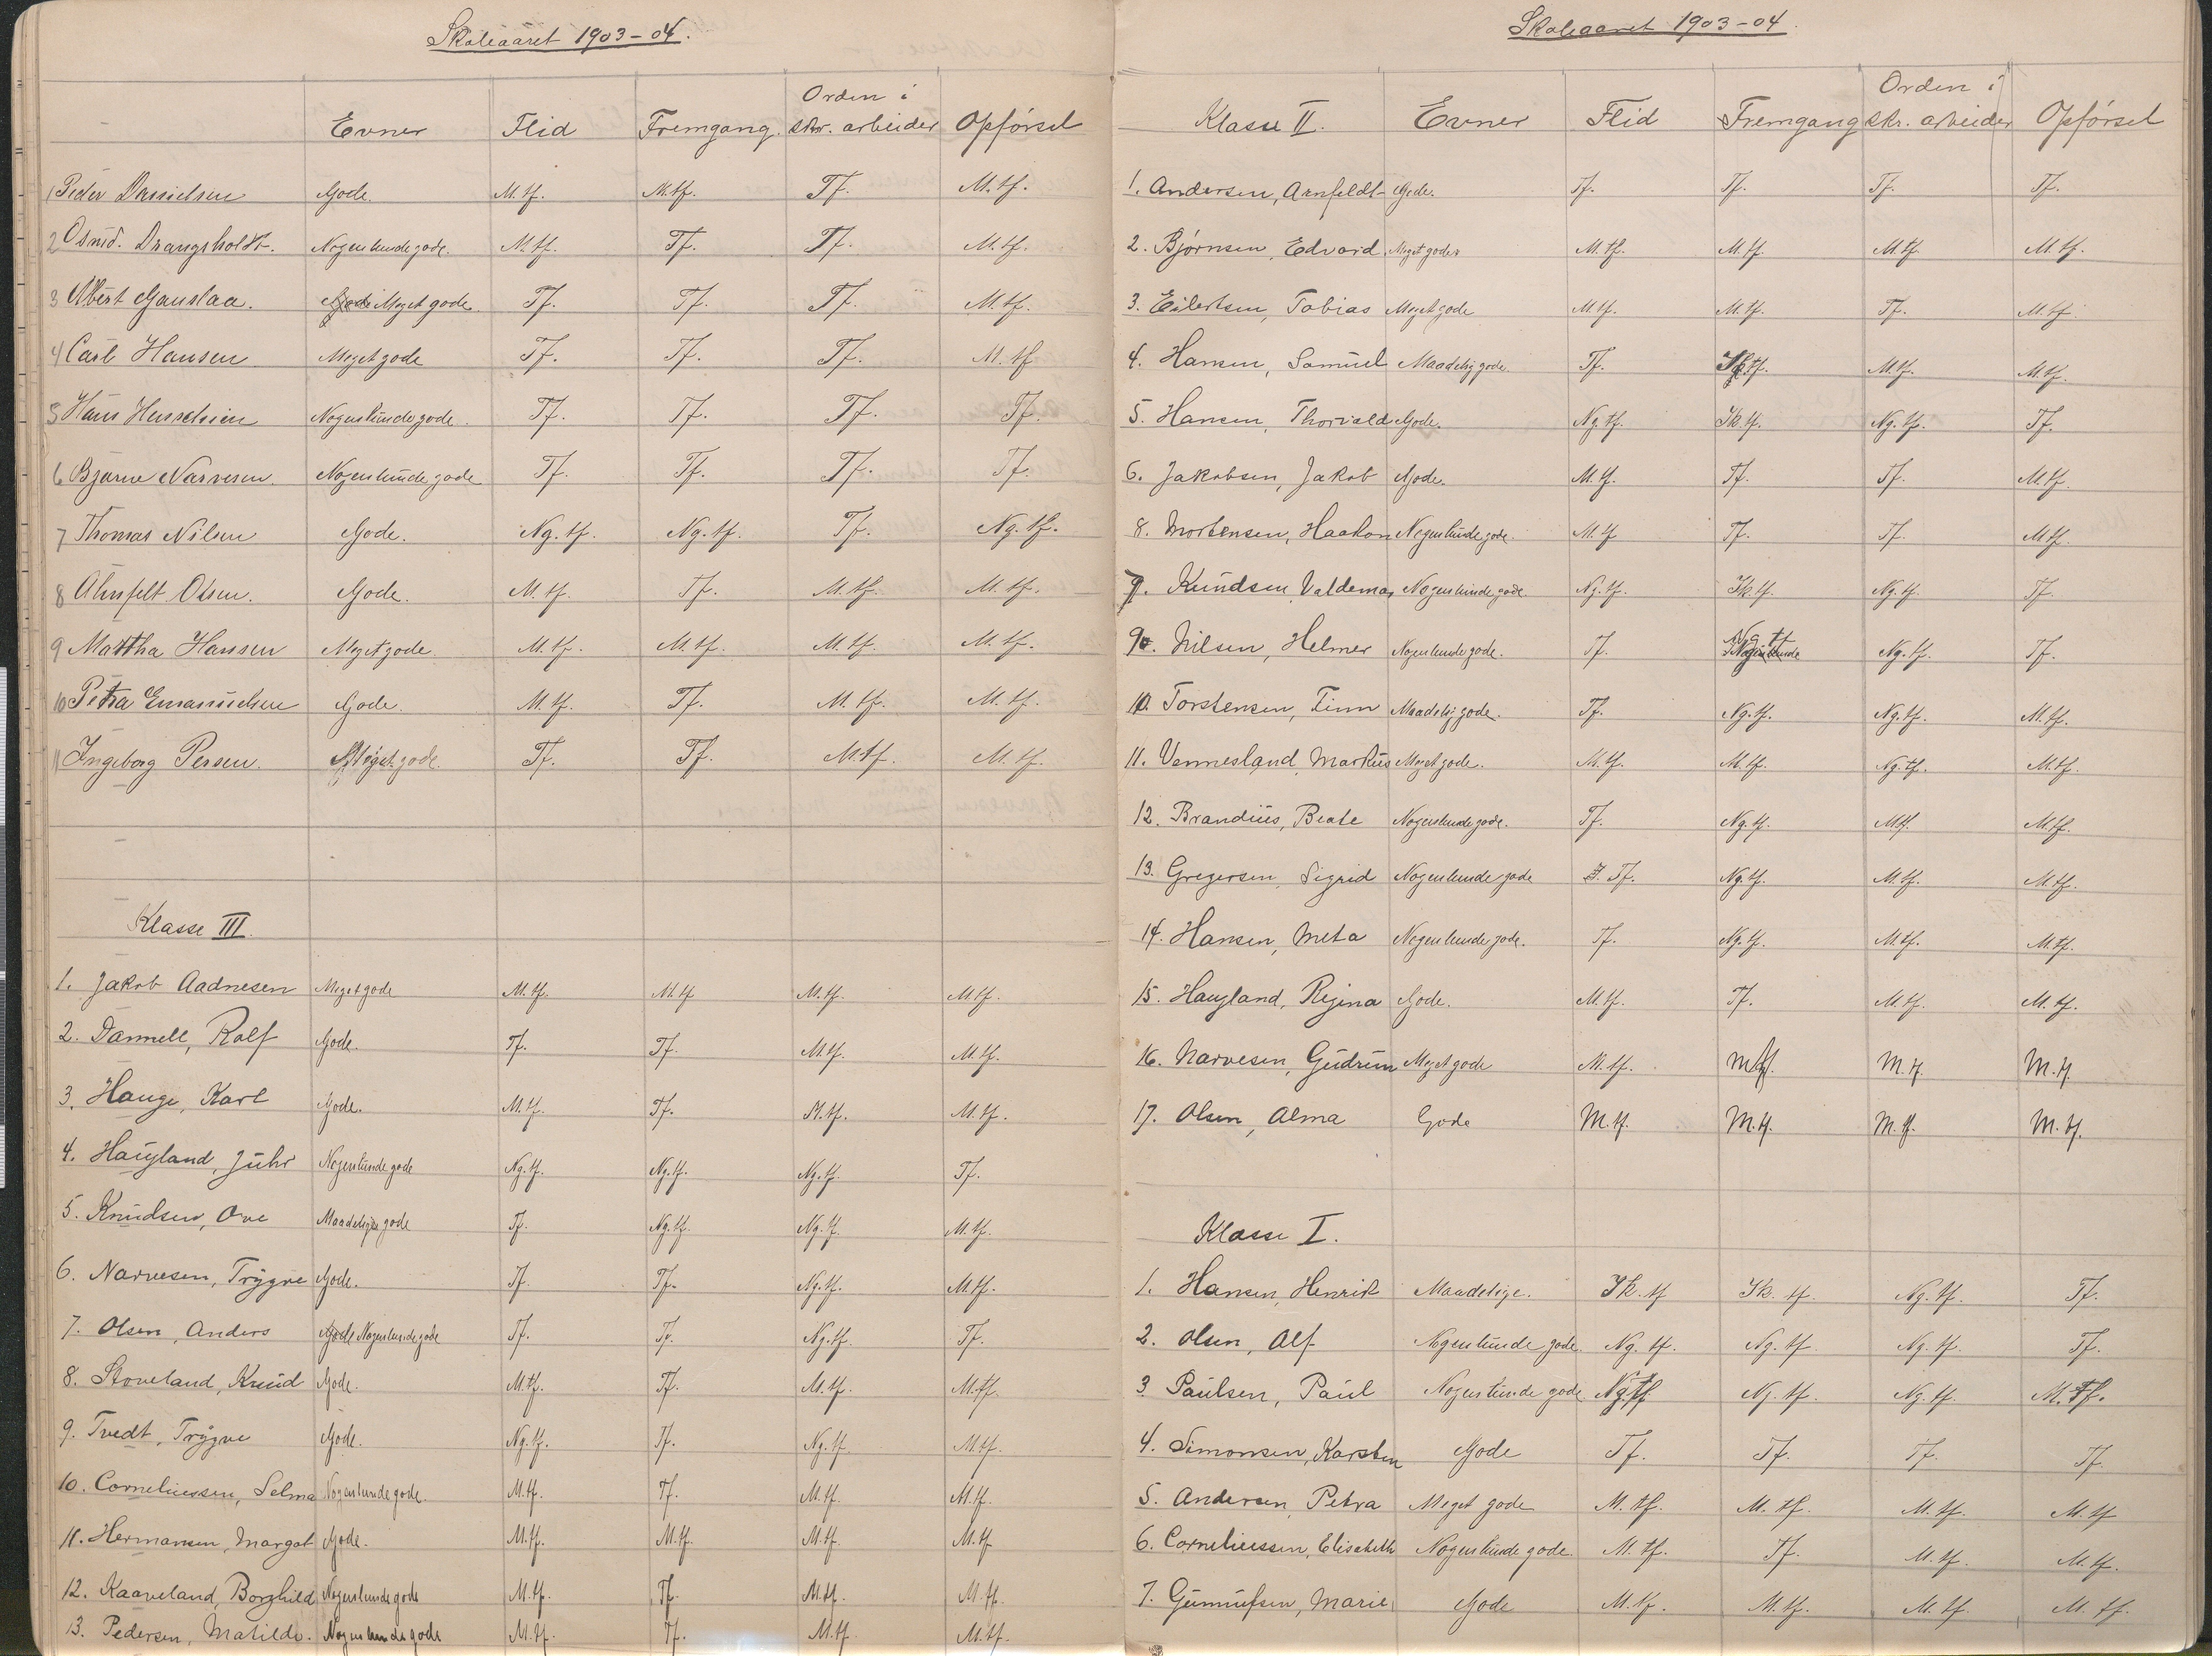 Skoleåaret 1903-04.
Evner Flid Fremgang. Orden i skr. arbeider Opførsel
1 Peder Danielsen Gode. M.tf. M.tf. Tf. M.tf.
2 Osmd. Drangsholdt. Nogenlunde gode. M.tf. Tf. Tf. M.tf.
3 Albert Gauslaa. Gode Meget gode. Tf. Tf. Tf. M.tf.
4 Carl Hansen Meget gode Tf. Tf. Tf. M.tf
5 Hans Nogenlunde gode. Tf. Tf. Tf. Tf.
6 Bjarne Narvesen. Nogenlunde gode Tf. Tf. Tf. Tf.
7 Thomas Nilsen Gode. Ng.tf. Ng.tf. Tf. Ng.tf.
8 Ahnfelt Olsen. Gode. M.tf. Tf. M.tf. M.tf.
9 Martha Hansen Meget gode. M.tf. M.tf. M.tf. M.tf.
10 Petra Emanuelsen Gode. M.tf. Tf. M.tf. M.tf.
11 Ingeborg Persen. Meget gode. Tf. Tf. M.tf. M.tf.
Klasse III.
1. Jakob Aadnesen Meget gode M.tf. M.tf M.tf. M.tf.
2. Dannell, Rolf Gode. Tf. Tf. M.tf. M.tf.
3. Hauge, Karl Gode. M.tf. Tf. M.tf. M.tf.
4. Haugland, Juhr Nogenlunde gode Ng.tf. Ng.tf. Ng.tf. Tf.
5. Knudsen, Ove Maadelig gode Tf. Ng.tf. Ng.tf. M.tf.
6. Narvesen, Trygve Gode. Tf. Tf. Ng.tf. M.tf.
7. Olsen, Anders Gode Nogenlunde gode Tf. Tf. Ng.tf. Tf.
8. Stoveland, Knud Gode. M.tf. Tf. M.tf. M.tf.
9. Tvedt, Trygve Gode. Ng.tf. Tf. Ng.tf. M.tf.
10. Corneliussen, Selma Nogenlunde gode. M.tf. Tf. M.tf. M.tf.
11. Hermansen, Margot Gode. M.tf. M.tf. M.tf. M.tf.
12. Kaaveland, Borghild Nogenlunde gode M.tf. Tf. M.tf. M.tf.
13. Pedersen, Matilde. Nogenlunde gode M.tf. Tf. M.tf. M.tf.
Skoleaaret 1903-04.
Klasse II. Evner Flid Fremgang Orden i skr. arbeider Opførsel
1. Andersen, Arnfeldt Gode. Tf. Tf. Tf. Tf.
2. Bjørnsen, Edvard. Meget gode. M.tf. M.tf. M.tf. M.tf.
3. Eilertsen, Tobias Meget gode M.tf. M.tf. Tf. M.tf.
4. Hansen, Samuel Maadelig gode. Tf. tf. M.tf. M.tf.
5. Hansen, Thorvald Gode. Ng.tf. Ik.tf. Ng.tf. Tf.
6. Jakobsen, Jakob Gode. M.tf. Tf. Tf. M.tf.
8. Mortensen, Haakon Nogenlunde gode. M.tf Tf. Tf. M.tf.
7. Knudsen, Valdemar Nogenlunde gode. Ng.tf. Ik.tf. Ng.tf. Tf.
9. Nilsen, Helmer Nogenlunde gode. Tf. Ng.tf Nogenlunde Ng.tf. Tf.
10. Torstensen, Finn Maadelig gode. Tf. Ng.tf. Ng.tf. M.tf.
11. Vennesland, Markus Meget gode. M.tf. M.tf. Ng.tf. M.tf.
12. Brandius, Beate Nogenlunde gode. Tf. Ng.tf. M.tf. M.tf.
13. Gregersen, Sigrid Nogenlunde gode Tf. Ng.tf. M.tf. M.tf.
14. Hansen, Meta Nogenlunde gode. Tf. Ng.tf. M.tf. M.tf.
15. Haugland, Regina Gode. M.tf. Tf. M.tf. M.tf.
16. Narvesen, Gudrun Meget gode M.tf. M.tf. M.tf. M.tf
17. Olsen, Alma Gode M.tf. M.tf. M.tf. M.tf.
Klasse I.
1. Hansen, Henrik Maadelige. Ik.tf Ik.tf. Ng.tf. Tf.
2. Olsen, Alf Nogenlunde gode. Ng.tf. Ng.tf. Ng.tf. Tf.
3 Paulsen, Paul Nogenlunde gode Ng.tf Ng.tf. Ng.tf. M.tf.
4. Simonsen, Karsten Gode Tf. Tf. Tf. Tf.
5. Andersen, Petra Meget gode M.tf. M.tf. M.tf. M.tf
6. Corneliussen, Elisabeth Nogenlunde gode. M.tf. Tf. M.tf. M.tf.
7. Gunnufsen, Marie Gode M.tf. M.tf. M.tf. M.tf.